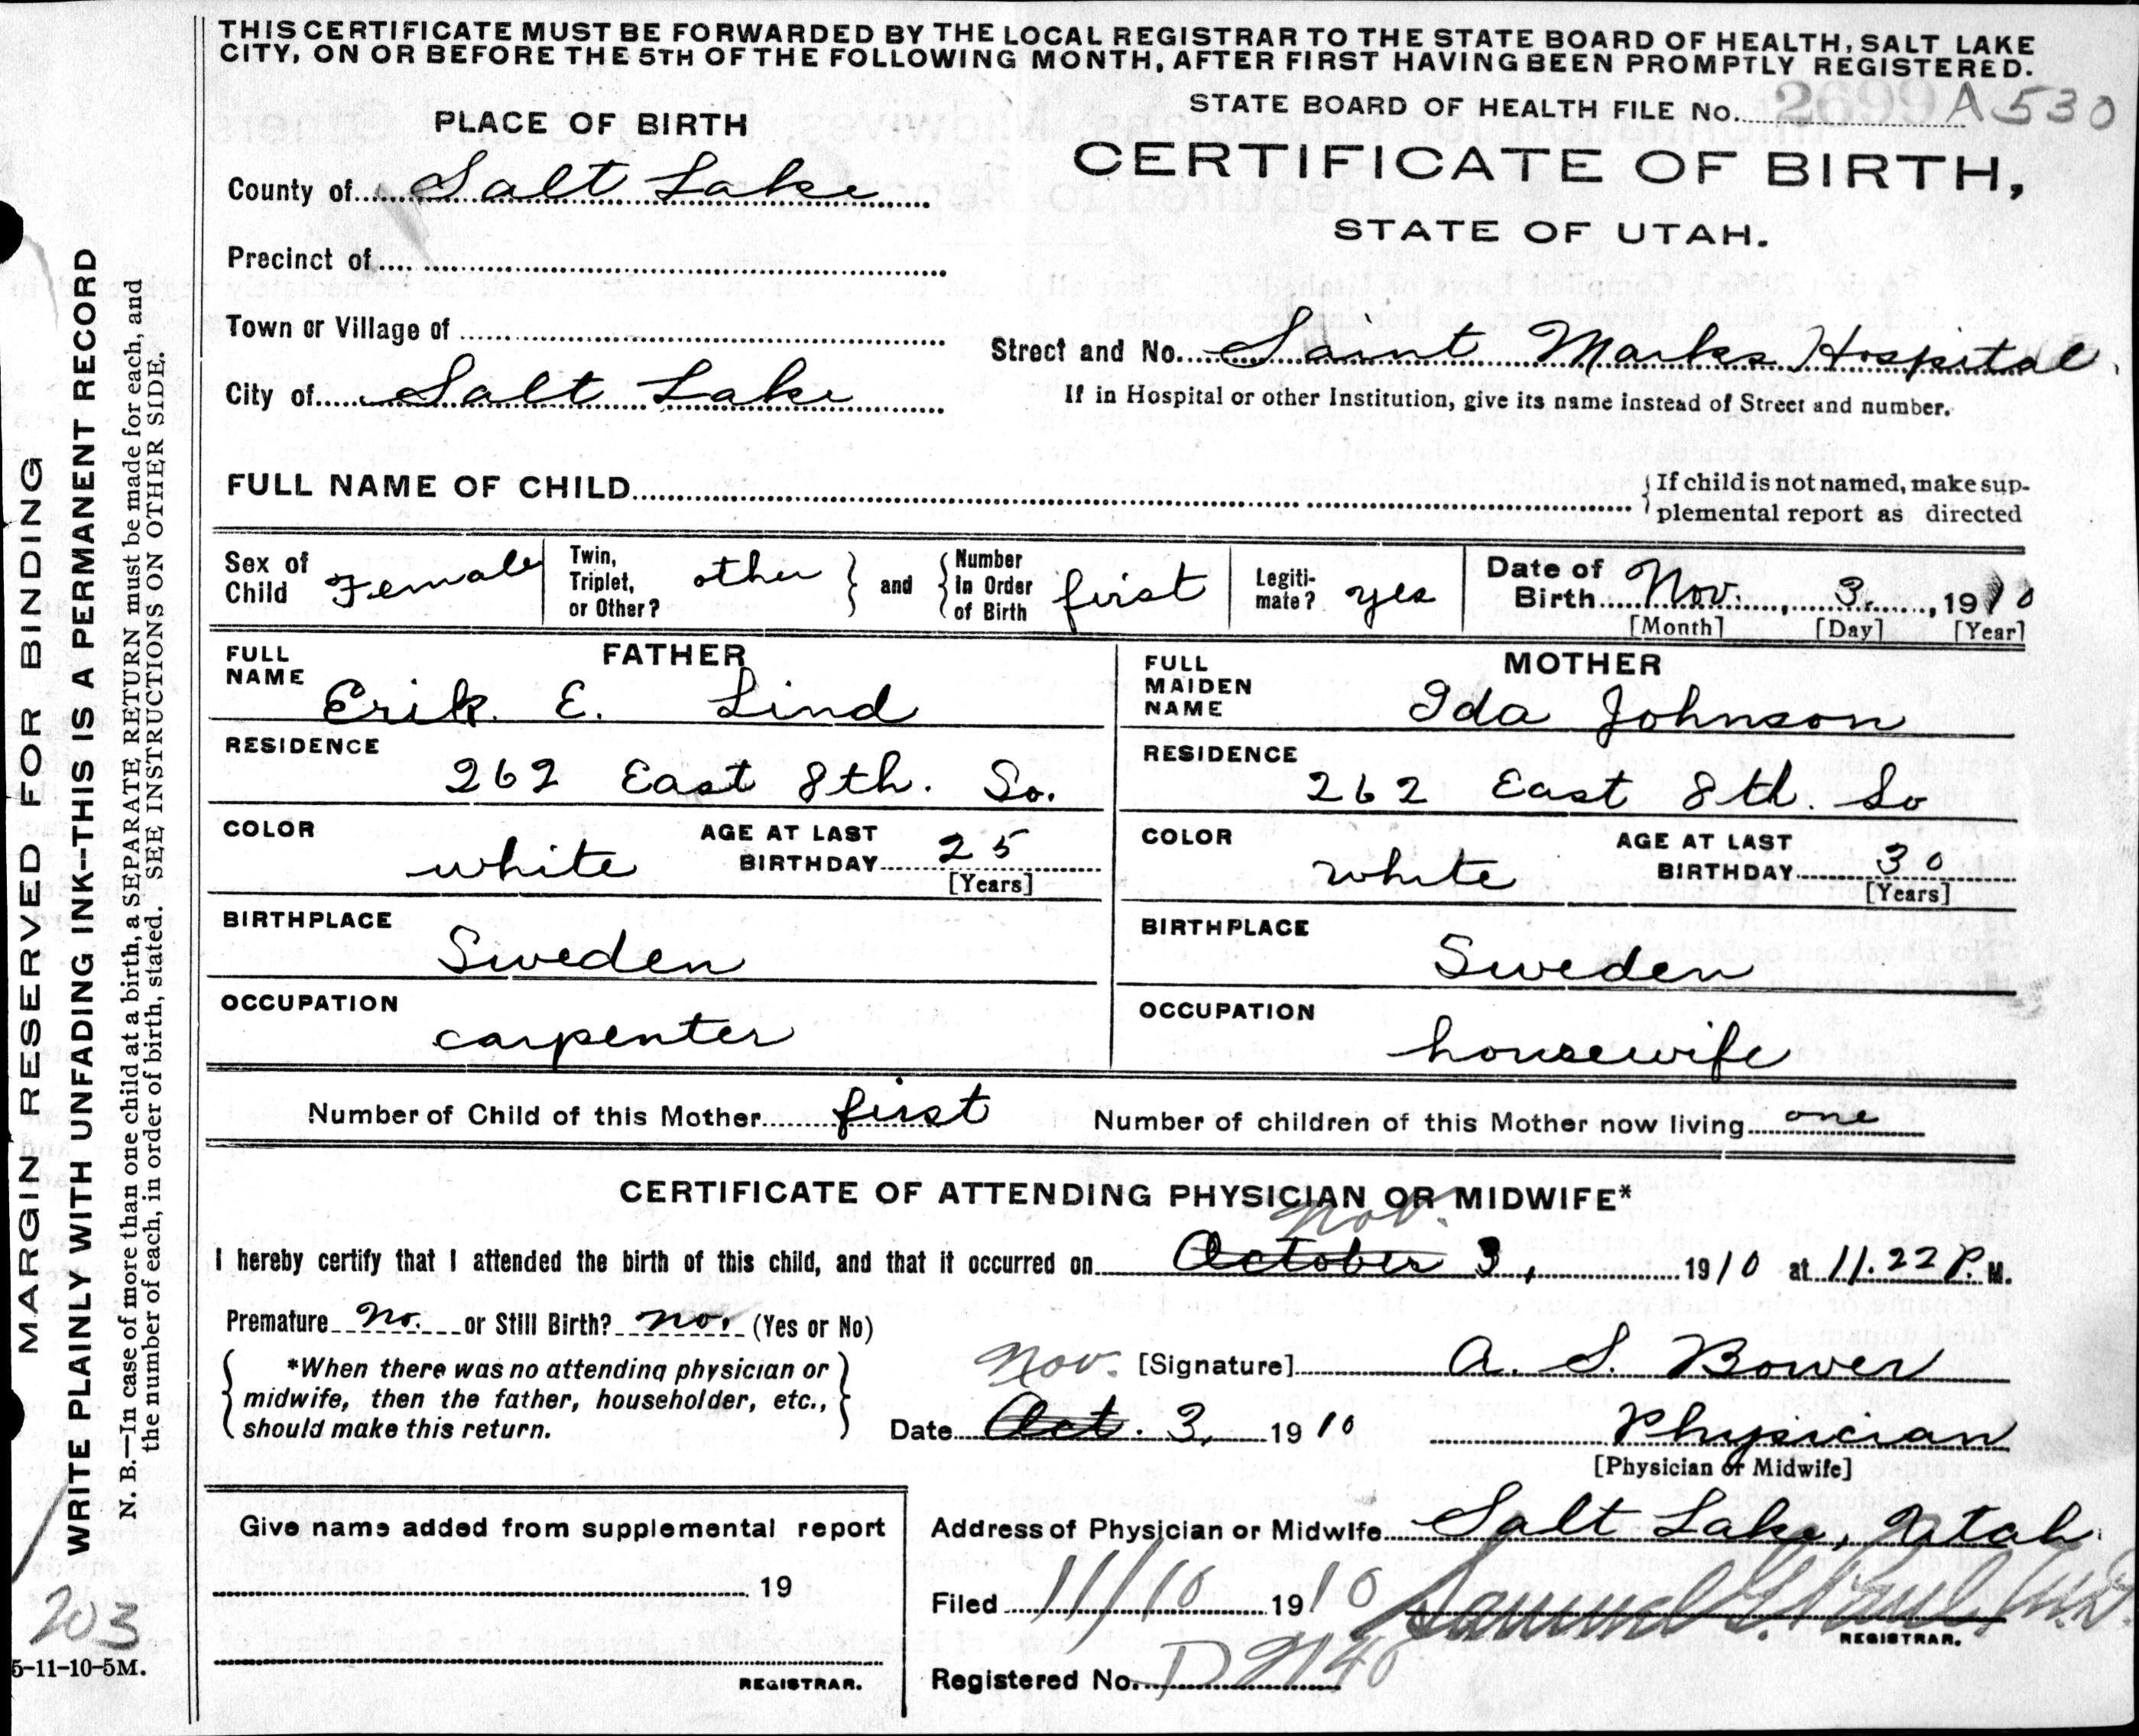 THIS CERTIFICATE MUST BE FORWARDED BY THE LOCAL REGISTRAR TO THE STATE BOARD OF HEALTH, SALT LAKE
CITY, ON OR BEFORE THE 5TH OF THE FOLLOWING MONTH, AFTER FIRST HAVING BEEN PROMPTLY REGISTERED.
STATE BOARD OF HEALTH FILE No. 2699 A530
PLACE OF BIRTH
CERTIFICATE OF BIRTH,
STATE OF UTAH.
County of Salt Lake
Precinct of
Town or Village of
Street and No. Saint Marks Hospital
City of Salt Lake
If in Hospital or other Institution, give its name instead of Street and number.
FULL NAME OF CHILD
If child is not named, make sup-
plemental report as directed
Sex of Child Female
Twin, Triplet, or Other? other
and
Number in Order of Birth first
Legiti-mate? yes
Date of Birth Nov. 3, 1910
[Month] [Day] [Year]
FATHER
FULL NAME Erik E. Lind
RESIDENCE 262 East 8th. So.
COLOR white AGE AT LAST BIRTHDAY 25 [Years]
BIRTHPLACE Sweden
OCCUPATION carpenter
MOTHER
FULL MAIDEN NAME Ida Johnson
RESIDENCE 262 East 8th. So
COLOR white AGE AT LAST BIRTHDAY 30 [Years]
BIRTHPLACE Sweden
OCCUPATION housewife
Number of Child of this Mother first Number of children of this Mother now living one
CERTIFICATE OF ATTENDING PHYSICIAN OR MIDWIFE*
Nov.
I hereby certify that I attended the birth of this child, and that it occurred on October 3, 1910 at 11.22 P. M.
Premature No. or Still Birth? no. (Yes or No)
*When there was no attending physician or
midwife, then the father, householder, etc.,
should make this return.
[Signature] A. S. Bower
Nov.
Date Oct. 3, 1910 Physician
[Physician or Midwife]
Give name added from supplemental report
19
REGISTRAR.
Address of Physician or Midwife Salt Lake, Utah.
Filed 11/10 1910 Samuel G. Paul M.D.
REGISTRAR.
Registered No. D2140
MARGIN RESERVED FOR BINDING
WRITE PLAINLY WITH UNFADING INK--THIS IS A PERMANENT RECORD
N. B.—In case of more than one child at a birth, a SEPARATE RETURN must be made for each, and
the number of each, in order of birth, stated. SEE INSTRUCTIONS ON OTHER SIDE.
203
5-11-10-5M.